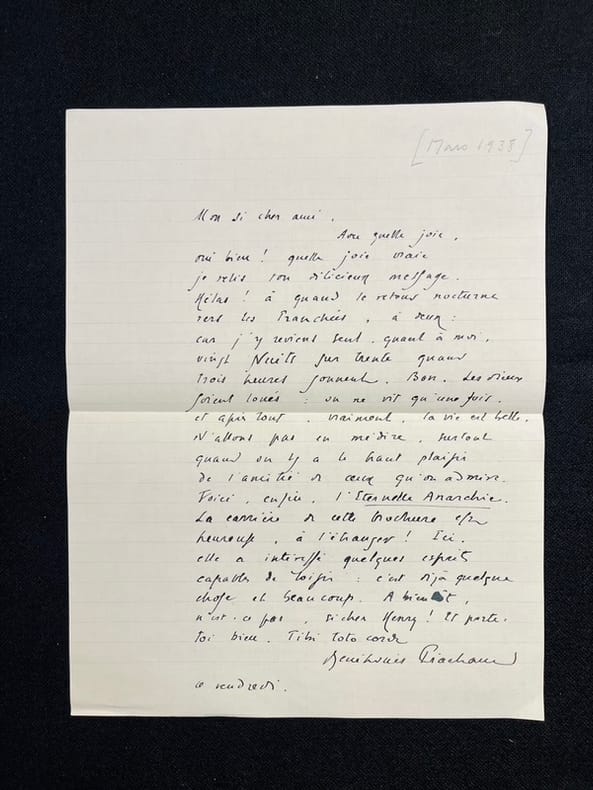 [Mars 1938]
Mon si cher ami,
Avec quelle joie,
oui bien ! quelle joie vraie
je relis ton délicieux message.
Hélas ! à quand le retour nocturne
vers les Tranchées, à deux :
car j'y reviens seul, quant à moi,
vingt Nuits sur trente quand
trois heures sonnent. Bon. Les dieux
soient loués : on ne vit qu'une fois.
et après tout, vraiment, la vie est belle.
N'allons pas en médire, surtout
quand on y a le haut plaisir
de l'amitié de ceux qu'on admire.
Voici, enfin, l'Eternelle Anarchie.
La carrière de cette brochure est
heureuse, à l'étranger ! Ici,
elle a intéressé quelques esprits
capables de loisir : c'est déjà quelque
chose et beaucoup. A bientôt,
n'est-ce pas, si cher Henry ! Et porte-
toi bien. Tibi toto corde
René-Louis Piachaud
ce vendredi.